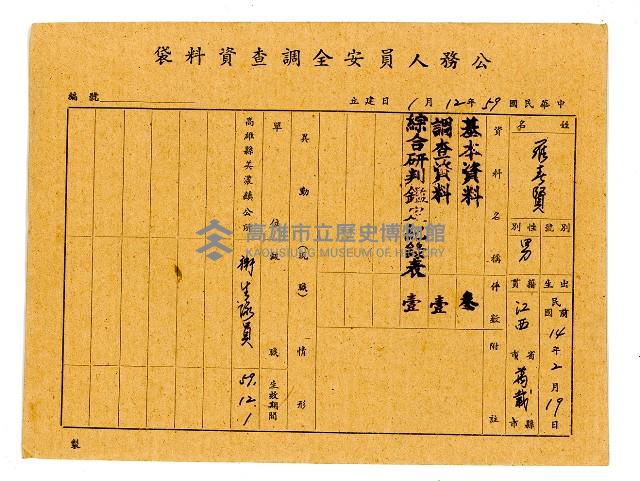 公務人員安全調查資料袋
編號
中華民國59年12月1日建立
姓名
羅春賢
別號
性別
男
出生
民國前14年2月19日
籍貫
江西省市萬載縣市
資料名稱
件數
附註
基本資料 叁
調查資料 壹
綜合研判鑑定紀錄表 壹
異動(現職)情形
單位
職級
職
生效期間
高雄縣美濃鎮公所
衛生隊員
59.12.1
製
高雄市立歷史博物館
KAOHSIUNG MUSEUM OF HISTORY